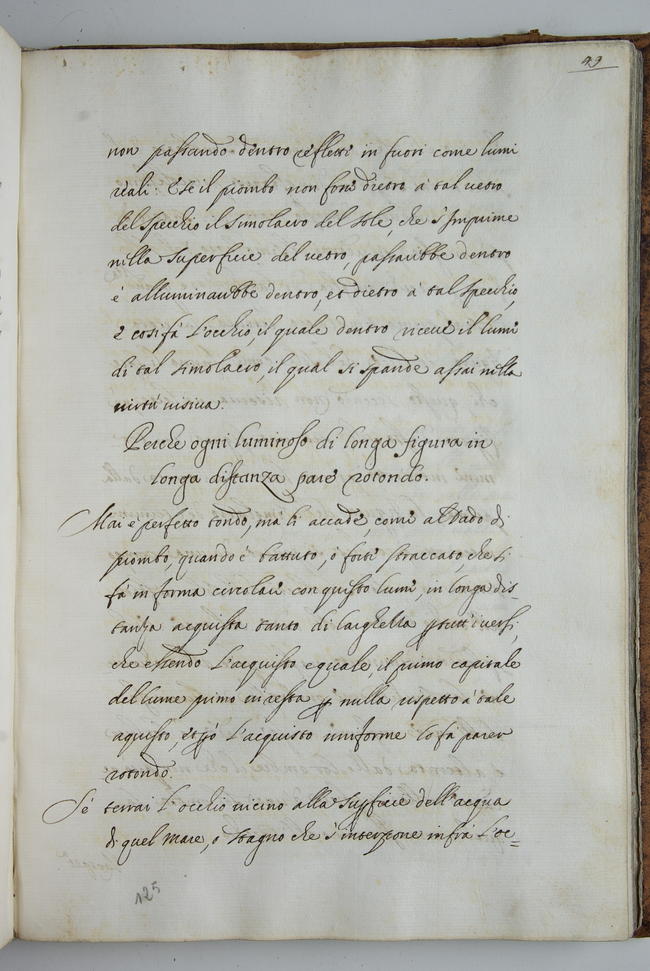 49
non passando dentro reflette in fuori come lumi
reali: E se il piombo non fosse dietro à tal vetro
del specchio il simolacro del sole, che s'Imprime
nella superficie del vetro, passarebbe dentro
e alluminarebbe dentro, et dietro à tal specchio,
e cosi fà l'occhio, il quale dentro riceve il lume
di tal simolacro, il qual si spande assai nella
virtù visiva.
Perche ogni luminoso di longa figura in
longa distanza pare rotondo.
Mai e perfetto tondo, ma li accade, come al Dado di
piombo, quando è battuto, ò forte straccato, che si
fà in forma circolare con questo lume, in longa dis-
tanza acquista tanto di larghezza p tutt'i versi,
che essendo l'acquisto equale, il primo capitale
del lume primo vi resta p nulla rispetto à tale
aquisto, et pò l'acquisto uniforme lo fà parer
rotondo.
Sé terrai l'occhio vicino alla supficie dell'acqua
di quel mare, ò stagno che s'interpone infra l'oc=
125